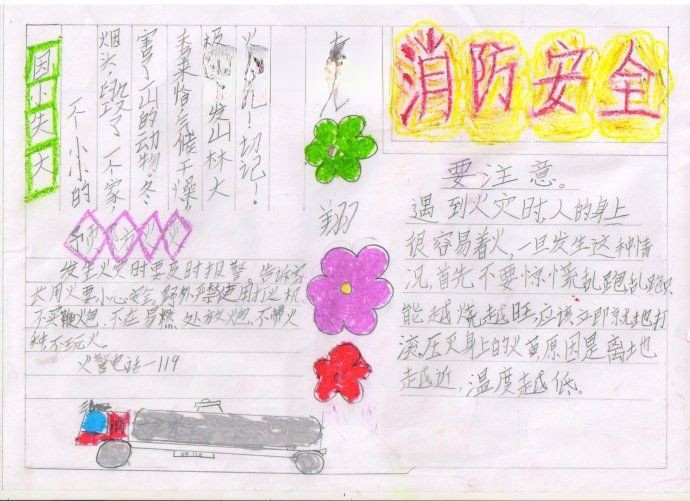 消防安全
要注意。
遇到火灾时,人的身上
很容易着火,一旦发生这种情
况,首先不要惊慌乱跑乱跑只
能越烧越旺,应该立即就地打
滚,压灭身上的火苗,原因是离地
越近,温度越低。
翔
因小失大
不小的
烟头,毁了不家,
害了山的动物。冬
季来临气候干燥
极发山林大
火!切记!
发生火灾时要及时报警,告诉家
长用火要小心安全,野外严禁使用打火机,
不买鞭炮,不在易燃处放炮,不带火
种不玩火。
火警电话—119